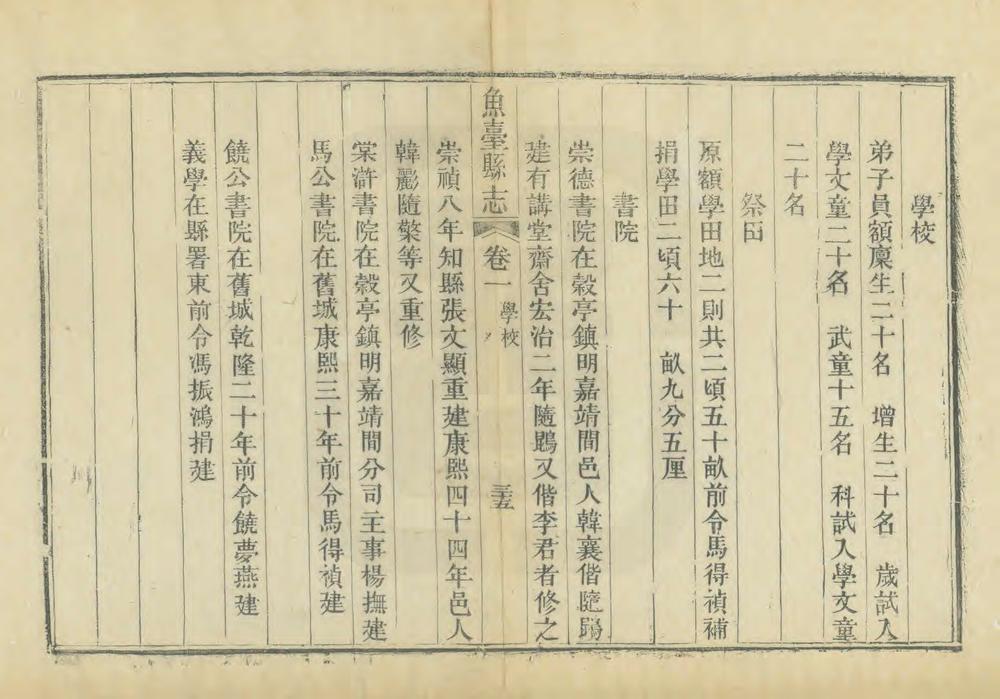 學校
弟子員額廩生二十名 增生二十名 歲試入
學文童二十名 武童十五名 科試入學文童
二十名
祭田
原額學田地二則共二頃五十畝前令馬得禎補
捐學田二頃六十 畝九分五厘
書院
崇德書院在穀亭鎮明嘉靖間邑人韓襄偕隨鵾
建有講堂齋舍宏治二年隨鵾又偕李君者修之
魚臺縣志 卷一 學校 三五
崇禎八年知縣張文顯重建康熙四十四年邑人
韓酈隨檠等又重修
棠滸書院在穀亭鎮明嘉靖間分司主事楊撫建
馬公書院在舊城康熙三十年前令馬得禎建
饒公書院在舊城乾隆二十年前令饒夢燕建
義學在縣署東前令馮振鴻捐建